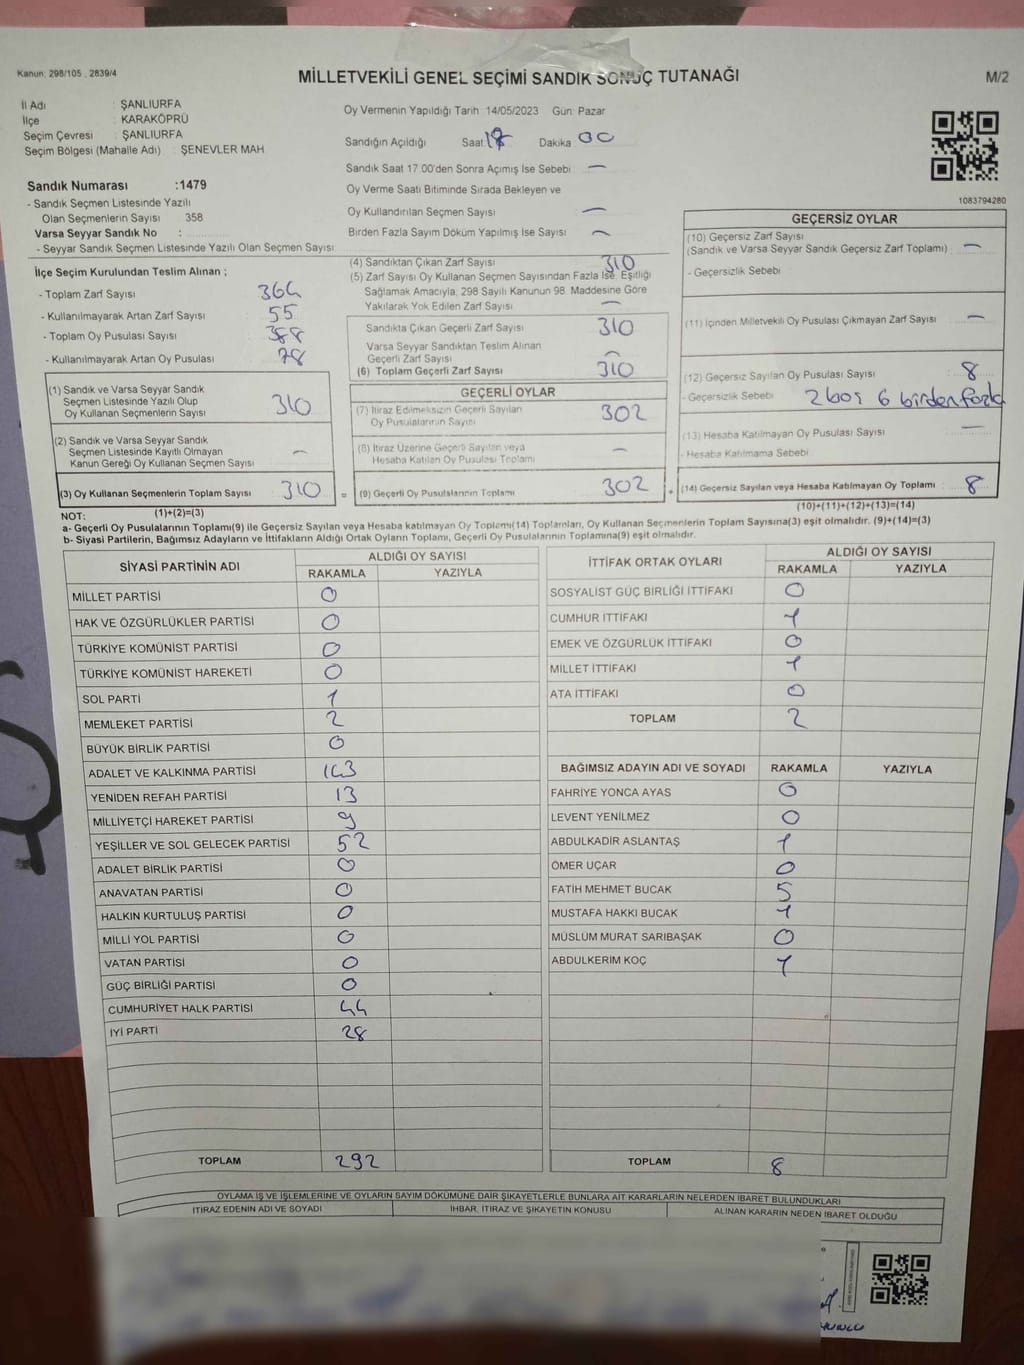 Kanun: 298/105 , 2839/4
MİLLETVEKİLİ GENEL SEÇİMİ SANDIK SONUÇ TUTANAĞI
M/2
İl Adı : ŞANLIURFA
İlçe : KARAKÖPRÜ
Seçim Çevresi : ŞANLIURFA
Seçim Bölgesi (Mahalle Adı) : ŞENEVLER MAH
Sandık Numarası :1479
- Sandık Seçmen Listesinde Yazılı
Olan Seçmenlerin Sayısı 358
Varsa Seyyar Sandık No :
- Seyyar Sandık Seçmen Listesinde Yazılı Olan Seçmen Sayısı
İlçe Seçim Kurulundan Teslim Alınan ;
- Toplam Zarf Sayısı 364
- Kullanılmayarak Artan Zarf Sayısı 55
- Toplam Oy Pusulası Sayısı 388
- Kullanılmayarak Artan Oy Pusulası 78
(1) Sandık ve Varsa Seyyar Sandık
Seçmen Listesinde Yazılı Olup
Oy Kullanan Seçmenlerin Sayısı 310
(2) Sandık ve Varsa Seyyar Sandık
Seçmen Listesinde Kayıtlı Olmayan
Kanun Gereği Oy Kullanan Seçmen Sayısı —
(3) Oy Kullanan Seçmenlerin Toplam Sayısı 310
(1)+(2)=(3)
Oy Vermenin Yapıldığı Tarih 14/05/2023 Gün: Pazar
Sandığın Açıldığı Saat 17 Dakika 00
Sandık Saat 17.00'den Sonra Açımış İse Sebebi —
Oy Verme Saati Bitiminde Sırada Bekleyen ve
Oy Kullandırılan Seçmen Sayısı —
Birden Fazla Sayım Döküm Yapılmış İse Sayısı —
(4) Sandıktan Çıkan Zarf Sayısı 310
(5) Zarf Sayısı Oy Kullanan Seçmen Sayısından Fazla İse, Eşitliği
Sağlamak Amacıyla; 298 Sayılı Kanunun 98. Maddesine Göre
Yakılarak Yok Edilen Zarf Sayısı —
Sandıkta Çıkan Geçerli Zarf Sayısı 310
Varsa Seyyar Sandıktan Teslim Alınan
Geçerli Zarf Sayısı —
(6) Toplam Geçerli Zarf Sayısı 310
GEÇERLİ OYLAR
(7) İtiraz Edilmeksizin Geçerli Sayılan
Oy Pusulalarının Sayısı 302
(8) İtiraz Üzerine Geçerli Sayılan veya
Hesaba Katılan Oy Pusulası Toplamı —
= (9) Geçerli Oy Pusulalarının Toplamı 302
1083794280
GEÇERSİZ OYLAR
(10) Geçersiz Zarf Sayısı
(Sandık ve Varsa Seyyar Sandık Geçersiz Zarf Toplamı) —
- Geçersizlik Sebebi
(11) İçinden Milletvekili Oy Pusulası Çıkmayan Zarf Sayısı —
(12) Geçersiz Sayılan Oy Pusulası Sayısı 8
- Geçersizlik Sebebi 2 boş 6 birden fazla
(13) Hesaba Katılmayan Oy Pusulası Sayısı —
- Hesaba Katılmama Sebebi
+ (14) Geçersiz Sayılan veya Hesaba Katılmayan Oy Toplamı 8
(10)+(11)+(12)+(13)=(14)
NOT:
a- Geçerli Oy Pusulalarının Toplamı(9) ile Geçersiz Sayılan veya Hesaba katılmayan Oy Toplamı(14) Toplamları, Oy Kullanan Seçmenlerin Toplam Sayısına(3) eşit olmalıdır. (9)+(14)=(3)
b- Siyasi Partilerin, Bağımsız Adayların ve İttifakların Aldığı Ortak Oyların Toplamı, Geçerli Oy Pusulalarının Toplamına(9) eşit olmalıdır.
SİYASİ PARTİNİN ADI
ALDIĞI OY SAYISI
RAKAMLA YAZIYLA
MİLLET PARTİSİ 0
HAK VE ÖZGÜRLÜKLER PARTİSİ 0
TÜRKİYE KOMÜNİST PARTİSİ 0
TÜRKİYE KOMÜNİST HAREKETİ 0
SOL PARTİ 1
MEMLEKET PARTİSİ 2
BÜYÜK BİRLİK PARTİSİ 0
ADALET VE KALKINMA PARTİSİ 143
YENİDEN REFAH PARTİSİ 13
MİLLİYETÇİ HAREKET PARTİSİ 9
YEŞİLLER VE SOL GELECEK PARTİSİ 52
ADALET BİRLİK PARTİSİ 0
ANAVATAN PARTİSİ 0
HALKIN KURTULUŞ PARTİSİ 0
MİLLİ YOL PARTİSİ 0
VATAN PARTİSİ 0
GÜÇ BİRLİĞİ PARTİSİ 0
CUMHURİYET HALK PARTİSİ 44
İYİ PARTİ 28
TOPLAM 292
İTTİFAK ORTAK OYLARI
ALDIĞI OY SAYISI
RAKAMLA YAZIYLA
SOSYALİST GÜÇ BİRLİĞİ İTTİFAKI 0
CUMHUR İTTİFAKI 1
EMEK VE ÖZGÜRLÜK İTTİFAKI 0
MİLLET İTTİFAKI 1
ATA İTTİFAKI 0
TOPLAM 2
BAĞIMSIZ ADAYIN ADI VE SOYADI RAKAMLA YAZIYLA
FAHRİYE YONCA AYAS 0
LEVENT YENİLMEZ 0
ABDULKADİR ASLANTAŞ 1
ÖMER UÇAR 0
FATİH MEHMET BUCAK 5
MUSTAFA HAKKI BUCAK 1
MÜSLÜM MURAT SARIBAŞAK 0
ABDULKERİM KOÇ 1
TOPLAM 8
OYLAMA İŞ VE İŞLEMLERİNE VE OYLARIN SAYIM DÖKÜMÜNE DAİR ŞİKAYETLERLE BUNLARA AİT KARARLARIN NELERDEN İBARET BULUNDUKLARI
İTİRAZ EDENİN ADI VE SOYADI İHBAR, İTİRAZ VE ŞİKAYETİN KONUSU ALINAN KARARIN NEDEN İBARET OLDUĞU